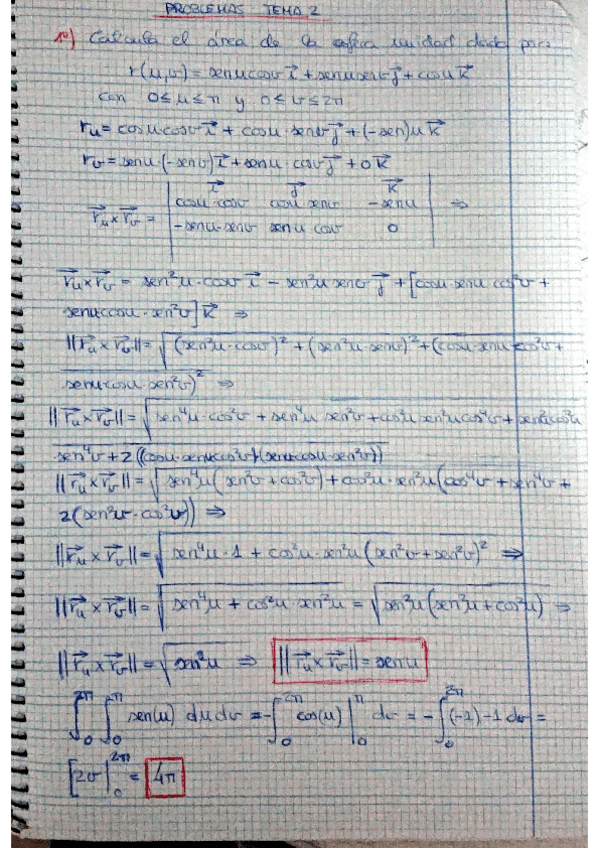 PROBLEMAS TEMA 2
1º) Calcula el área de la esfera unidad dada por
r(u,v) = senu cosv i⃗ + senu senv j⃗ + cosu k⃗
con 0≤u≤π y 0≤v≤2π
ru = cosu·cosv i⃗ + cosu·senv j⃗ + (-sen)u k⃗
rv = senu·(-senv) i⃗ + senu·cosv j⃗ + 0 k⃗
i⃗ j⃗ k⃗
r⃗u × r⃗v = | cosu·cosv cosu senv -senu | ⇒
-senu·senv senu cosv 0
r⃗u × r⃗v = sen²u·cosv i⃗ - sen²u senv j⃗ + [cosu·senu cos²v +
senu cosu·sen²v] k⃗ ⇒
||r⃗u × r⃗v|| = √(sen²u·cosv)² + (sen²u·senv)² + (cosu·senu cos²v +
senu·cosu·sen²v)² ⇒
||r⃗u × r⃗v|| = √sen⁴u·cos²v + sen⁴u sen²v + cos²u sen²u cos⁴v + sen²u cos²u
sen⁴v + 2((cosu·senu cos²v)(senu·cosu·sen²v))
||r⃗u × r⃗v|| = √sen⁴u(sen²v + cos²v) + cos²u·sen²u(cos⁴v + sen⁴v +
2(sen²v·cos²v)) ⇒
||r⃗u × r⃗v|| = √sen⁴u·1 + cos²u·sen²u(sen²v + sen²v)² ⇒
||r⃗u × r⃗v|| = √sen⁴u + cos²u sen²u = √sen²u(sen²u + cos²u) ⇒
||r⃗u × r⃗v|| = √sen²u ⇒ ||r⃗u × r⃗v|| = senu
∫₀^2π ∫₀^π sen(u) du dv = -∫₀^2π cos(u)|₀^π dv = -∫₀^2π (-1) - 1 dv =
[2v|₀^2π = 4π